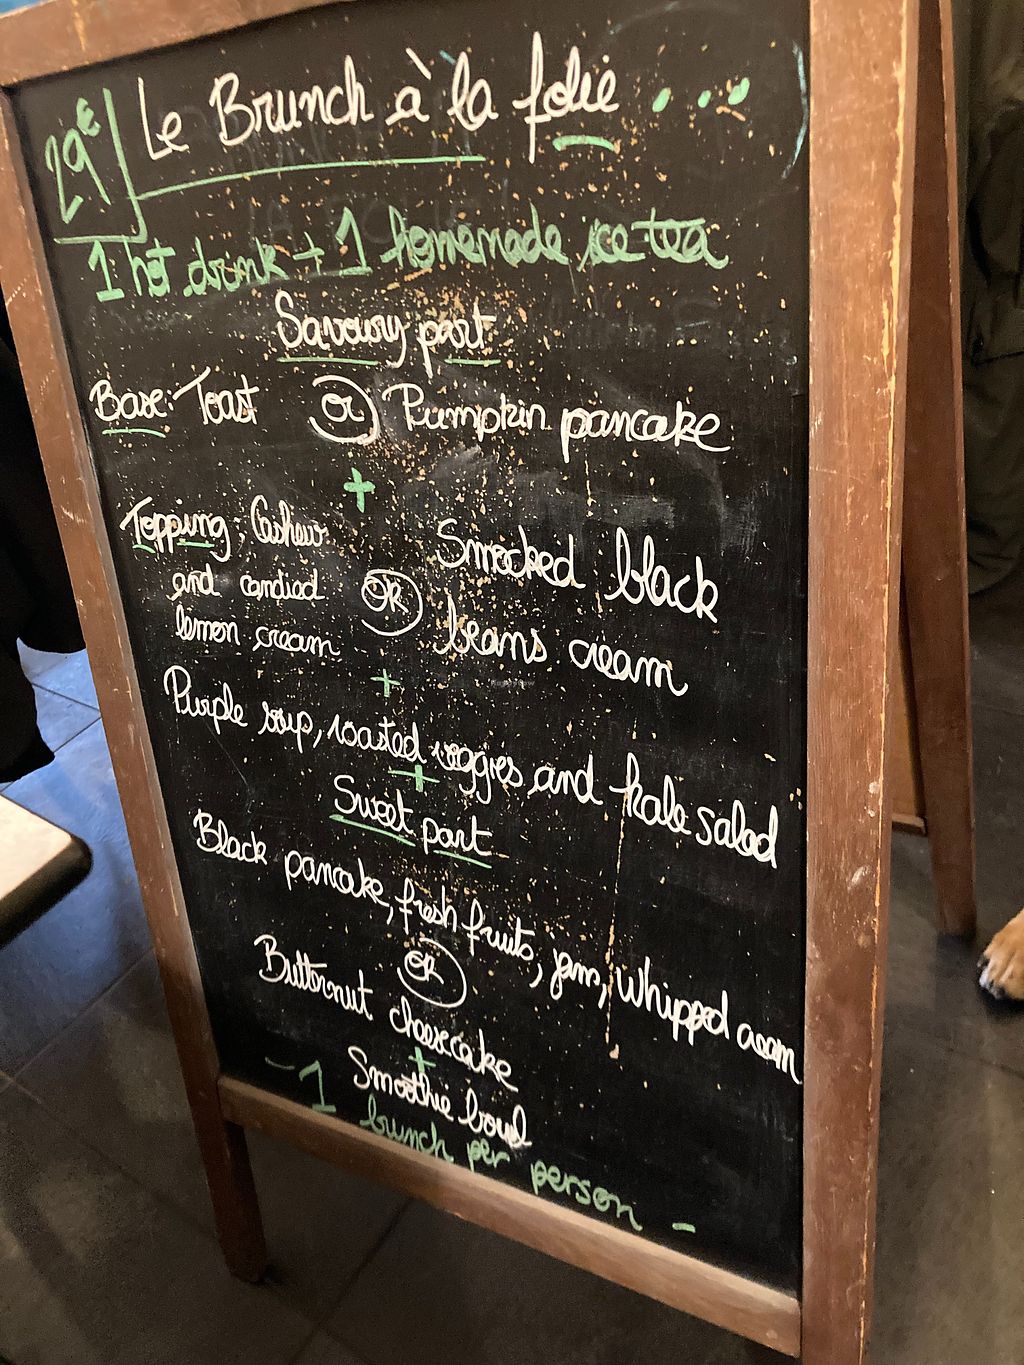 29€ Le Brunch à la folie ...
1 hot drink + 1 homemade ice tea
Savoury part
Base: Toast OR Pumpkin pancake
+
Topping: Cashew and candied lemon cream OR Smocked black beans cream
+
Purple soup, roasted veggies and kale salad
+
Sweet part
Black pancake, fresh fruits, jam, whipped cream
OR
Butternut cheesecake
+
Smoothie bowl
- 1 brunch per person -